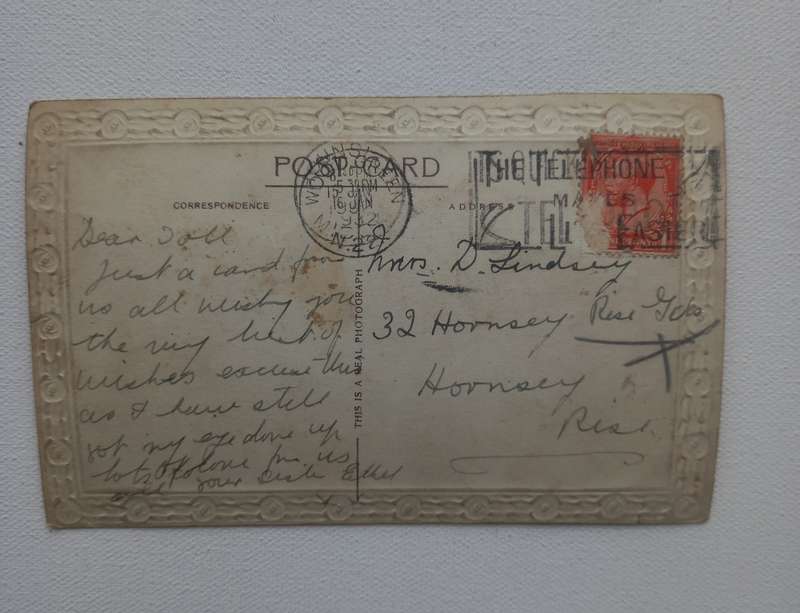 POST CARD
CORRESPONDENCE
ADDRESS
WOOD GREEN
N.22
THE TELEPHONE
MAKES
EASIER
Dear Doll
Just a card from
us all wishing you
the very best of
wishes excuse this
as I have still
got my eye done up
lots of love from us
all your sister Ethel
THIS IS A REAL PHOTOGRAPH
Mrs. D. Lindsey
32 Hornsey Rise Gds
Hornsey
Rise